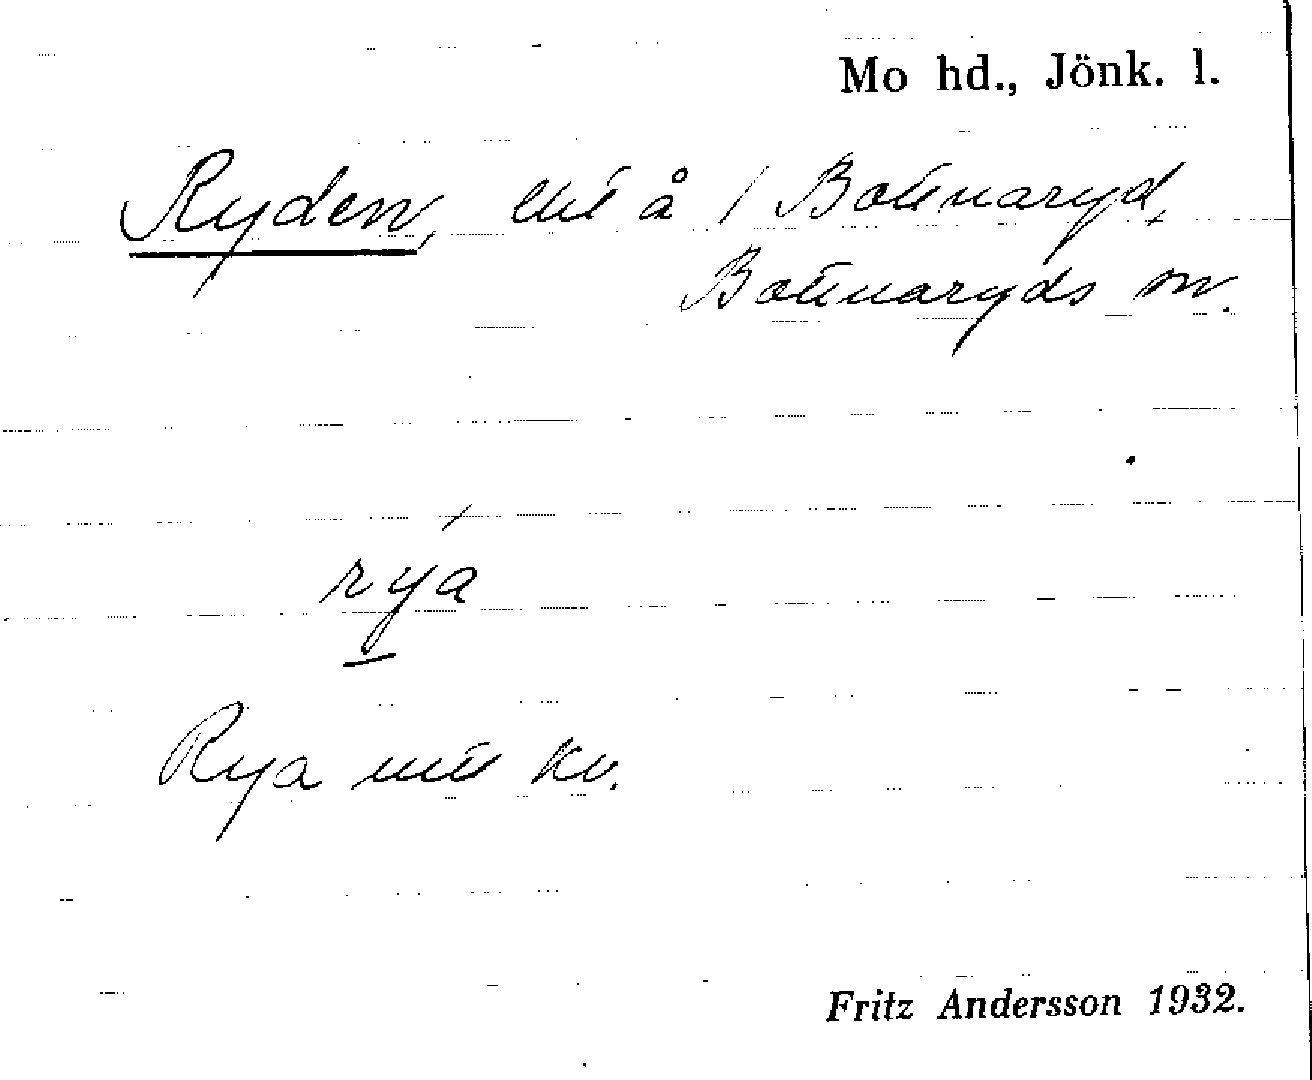 Mo hd., Jönk. l.
Ryden, lht å / Bottnaryd,
Bottnaryds sn.
rya
Rya utt kv.
Fritz Andersson 1932.